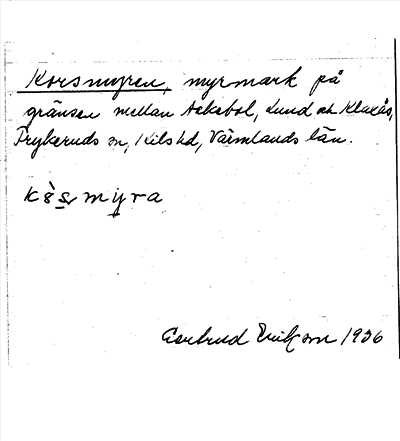 Korsmyren, myrmark på
gränsen mellan Ackebol, Lund och Klaxås,
Frykeruds sn, Kils hd, Värmlands län.
kò̀s̠myra
Gertrud Erikson 1936